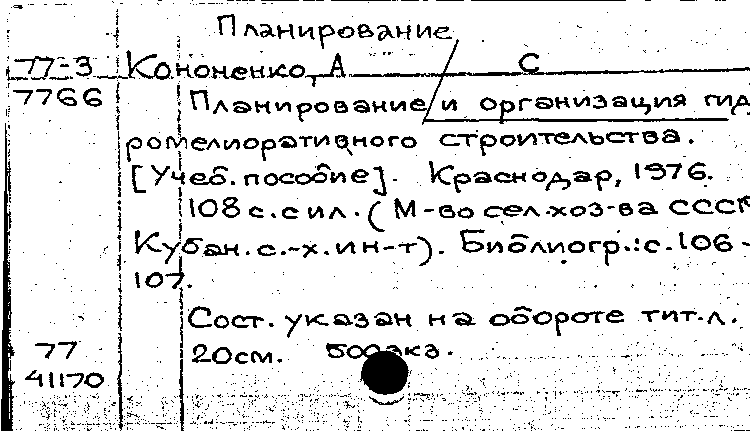 Планирование
77-3 Кононенко, А С
7766 Планирование и организация гид
ромелиоративного строительства.
[Учеб. пособие]. Краснодар, 1976.
108 с. с ил. (М-во сел. хоз-ва СССР
Кубан. с.-х. ин-т). Библиогр.: с. 106-
107.
Сост. указан на обороте тит. л.
77 20см. 500 экз.
41170